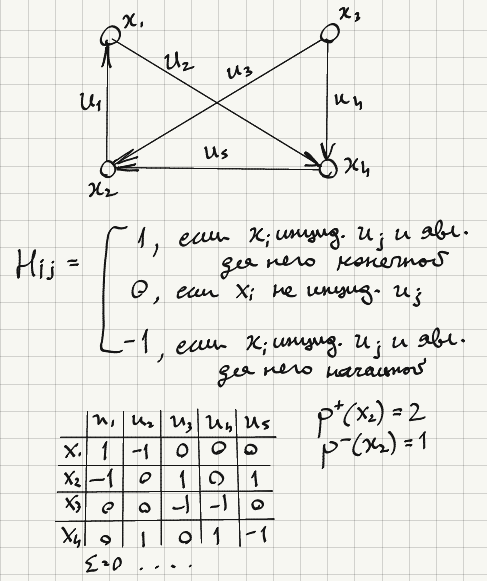 x₁
x₃
u₂
u₃
u₁
u₄
u₅
x₂
x₄
Hij =
1, если xᵢ инцид. uⱼ и явл.
для него конечной
0, если xᵢ не инцид. uⱼ
-1, если xᵢ инцид. uⱼ и явл.
для него начальной
u₁ u₂ u₃ u₄ u₅
x₁ 1 -1 0 0 0
x₂ -1 0 1 0 1
x₃ 0 0 -1 -1 0
x₄ 0 1 0 1 -1
Σ=0 . . . .
p⁺(x₂) = 2
p⁻(x₂) = 1